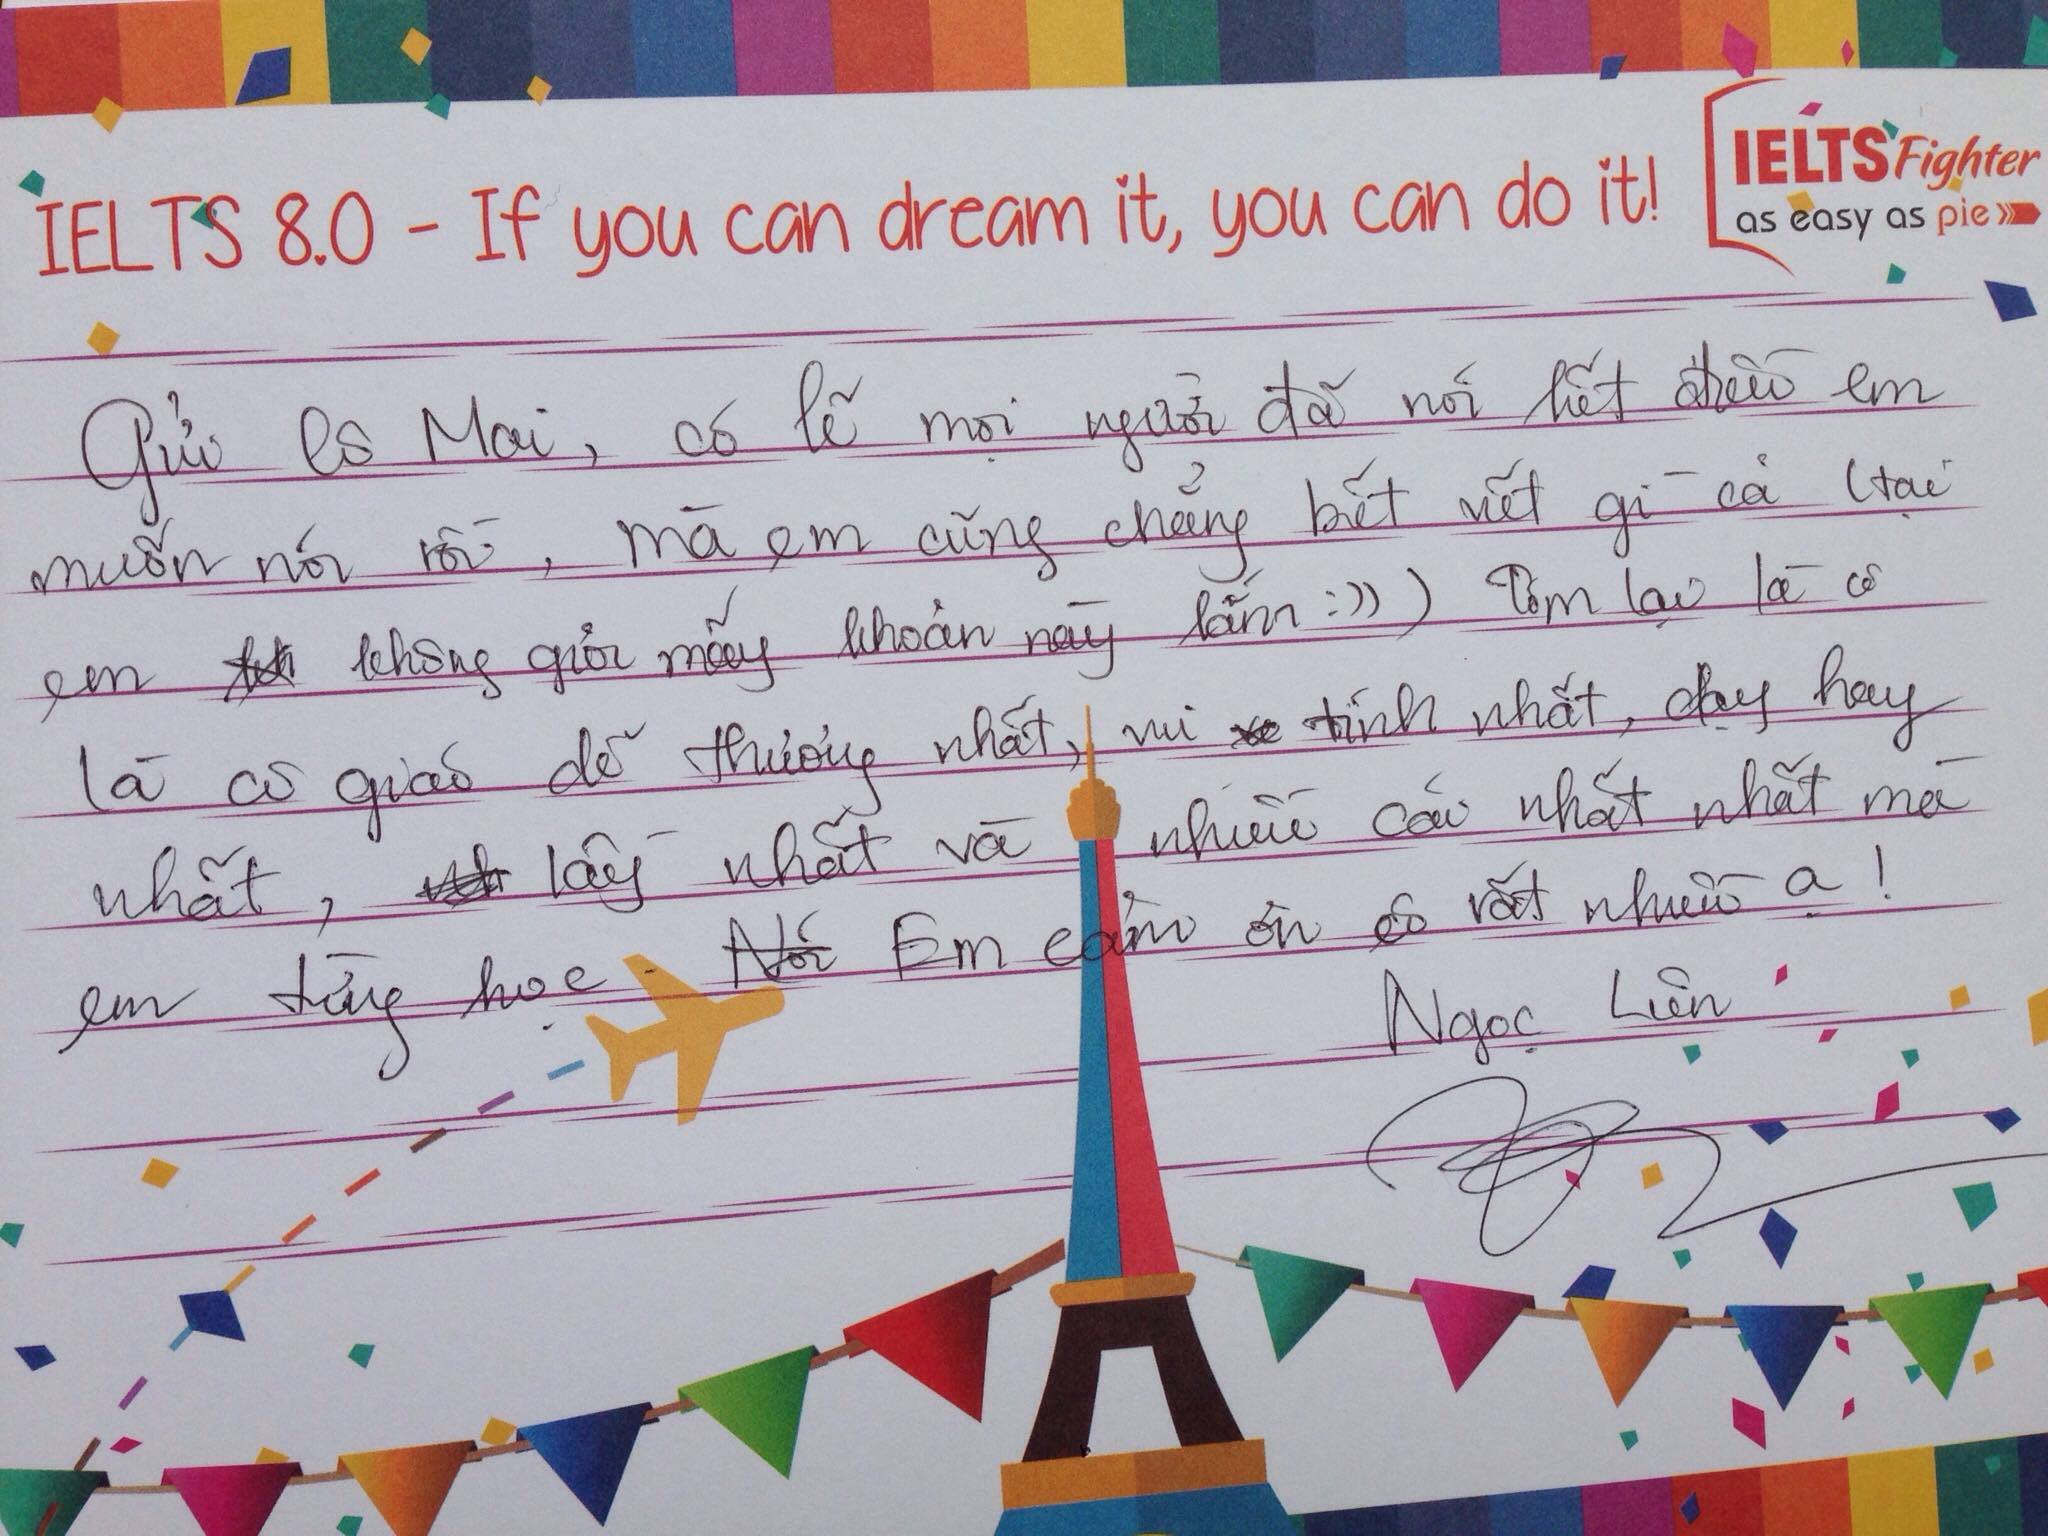 IELTS 8.0 - If you can dream it, you can do it!
IELTS Fighter
as easy as pie
Gửi cô Mai, có lẽ mọi người đã nói hết điều em
muốn nói rồi, mà em cũng chẳng biết viết gì cả (tại
em không giỏi mấy khoản này lắm :))) Tóm lại là cô
là cô giáo dễ thương nhất, vui tính nhất, dạy hay
nhất, lầy nhất và nhiều cái nhất nhất mà
em từng học. Nói Em cảm ơn cô rất nhiều ạ!
Ngọc Liên